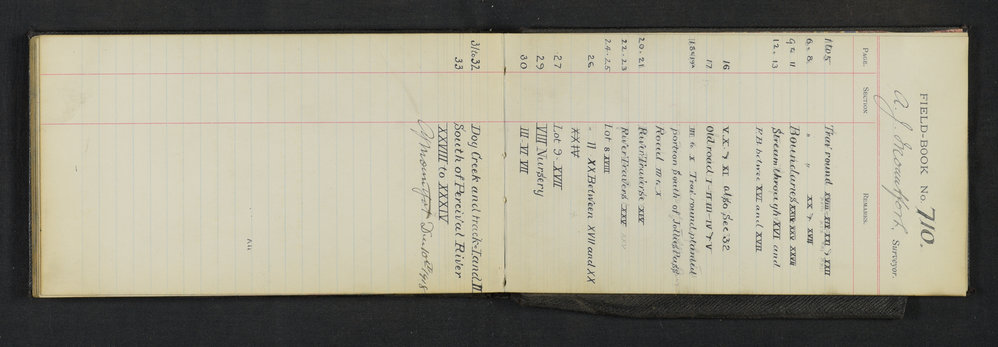 FIELD-BOOK No. 710.
A. J. Mountfort, Surveyor.
PAGE. SECTION REMARKS.
1 to 5 Trav round XVIII XIX XXI & XXII
6. 8. " " XX & XVII
9 & 11 Boundaries XXIV XXV XXVI
12. 13 Stream through XVI and
F.B. betwee XVI and XVII
16 V. X. & XI also Sec 32
17 Old road I-II III-IV & V
18 & 19A III & X Trav round planted
portion South of Jollies Pass
Road III & X
20. 21 River Traverse XIV
22. 23 River Travers XXV
24. 25 Lot 8 XVIII
26 " 11 XX Between XVII and XX
XXIV
27 Lot 9 XVII
29 VIII Nursery
30 III VI VII
31 to 32 Dog Creek and track-Land II
33 South of Percival River
XXVIII to XXXIV
AJ Mountfort Dec 10th 1908